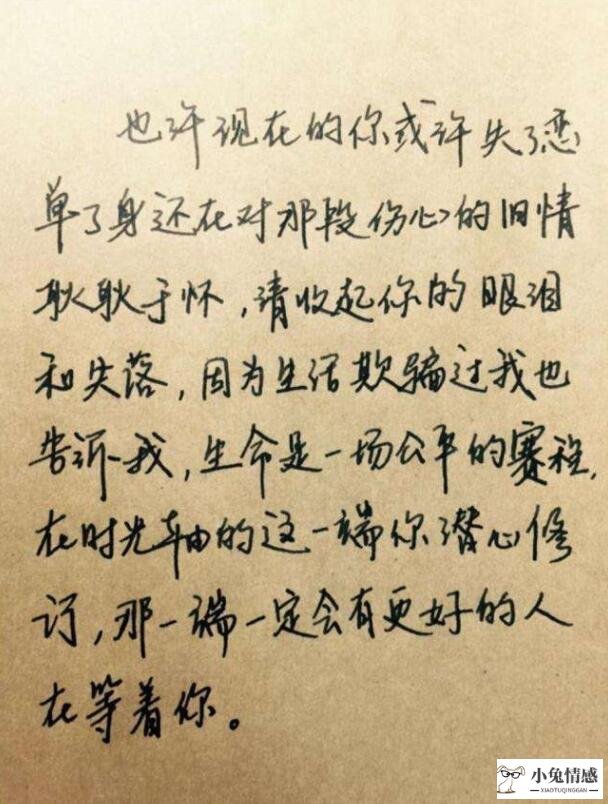 也许现在的你或许失了恋
单了身还在对那段伤心的旧情
耿耿于怀，请收起你的眼泪
和失落，因为生活欺骗过我也
告诉我，生命是一场公平的赛程，
在时光轴的这一端你潜心修
订，那一端一定会有更好的人
在等着你。
小兔情感
XIAOTUQINGGAN